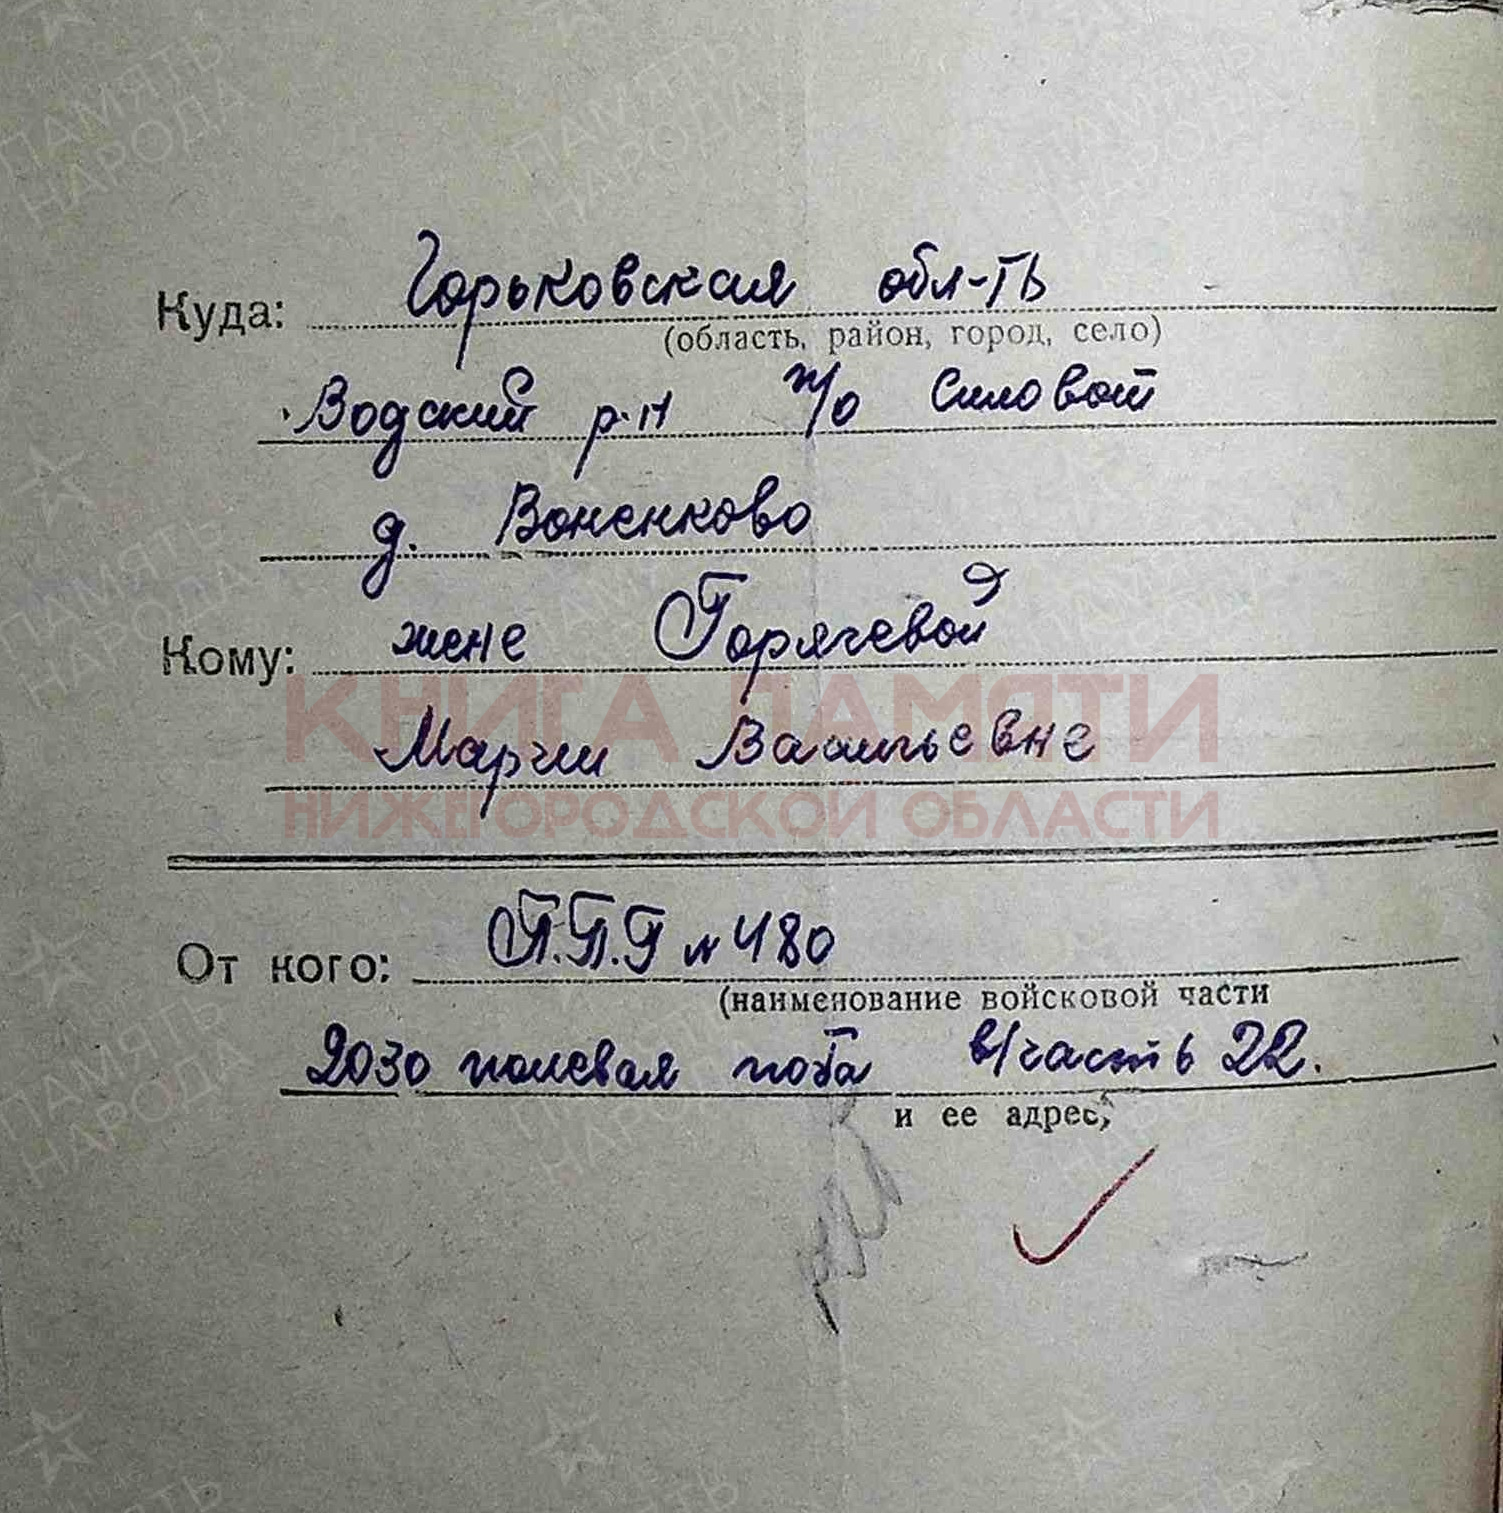 Куда: Горьковская обл-ть
(область, район, город, село)
Водский р-н п/о Силовой
д. Воненково
Кому: жене Горячевой
КНИГА ПАМЯТИ
Марии Васильевне
НИЖЕГОРОДСКОЙ ОБЛАСТИ
От кого: П.П.Г № 480
(наименование войсковой части
2030 полевая почта в/часть 22.
и ее адрес)
ПАМЯТЬ
НАРОДА